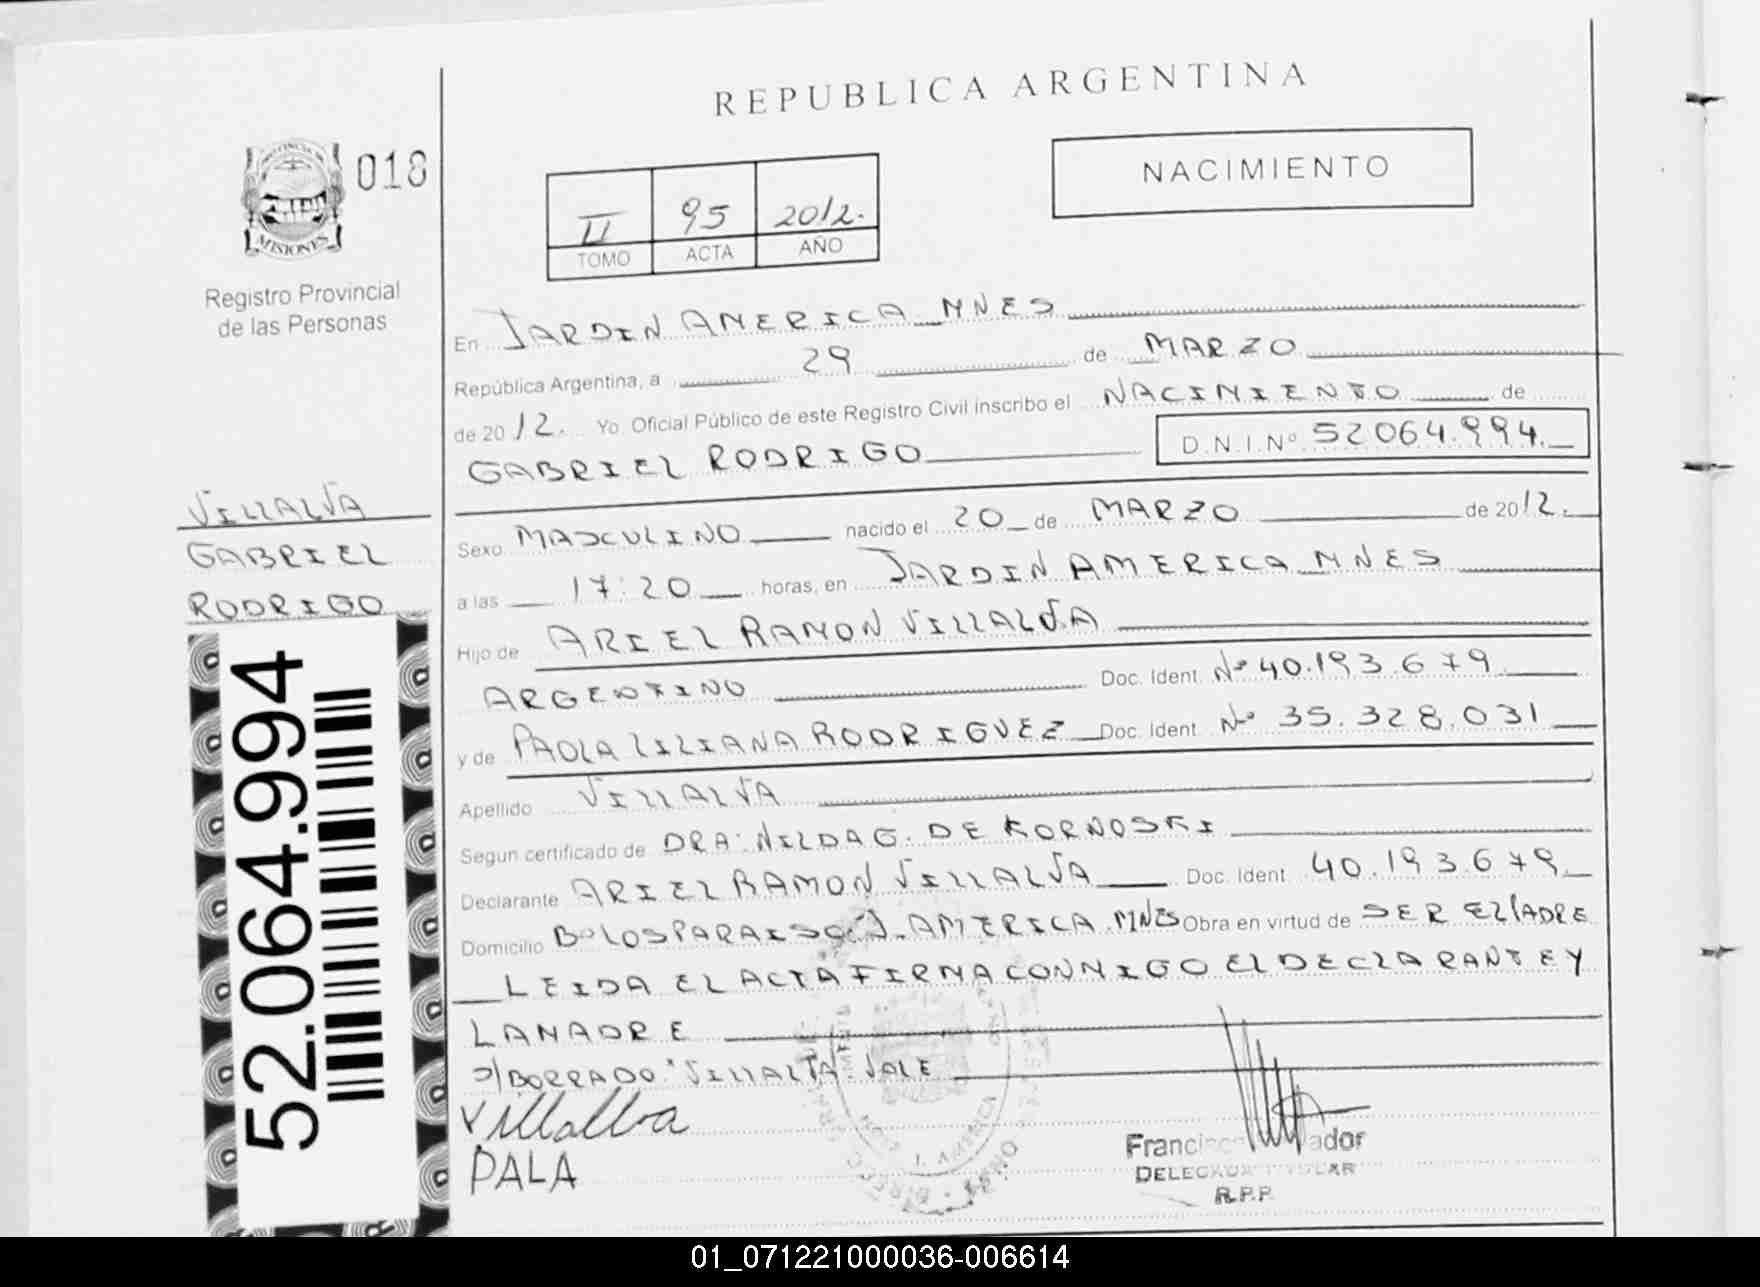 REPUBLICA ARGENTINA
NACIMIENTO
018
MISIONES
Registro Provincial
de las Personas
II 95 2012.
TOMO ACTA AÑO
En JARDIN AMERICA MNES
República Argentina, a 29 de MARZO
de 2012. Yo Oficial Público de este Registro Civil inscribo el NACIMIENTO de
GABRIEL RODRIGO D.N.I.Nº 52064.994.
VILLALVA
GABRIEL
RODRIGO
Sexo MASCULINO nacido el 20 de MARZO de 2012.
a las 17:20 horas, en JARDIN AMERICA MNES
Hijo de ARIEL RAMON VILLALVA
ARGENTINO Doc. Ident. Nº 40.193.679
y de PAOLA LILIANA RODRIGUEZ Doc. Ident. Nº 35.328.031
Apellido VILLALVA
Segun certificado de DRA: NILDA G. DE KORNOSKI
Declarante ARIEL RAMON VILLALVA Doc. Ident. 40.193.679
Domicilio Bº LOS PARAISOS J. AMERICA. MNES Obra en virtud de SER EL PADRE
LEIDA EL ACTA FIRMA CONMIGO EL DECLARANTE Y
LA MADRE
S/BORRADO "VILLALVA" VALE
Villalba
PALA
52.064.994
DELEGADO TITULAR
R.P.P.
01_071221000036-006614